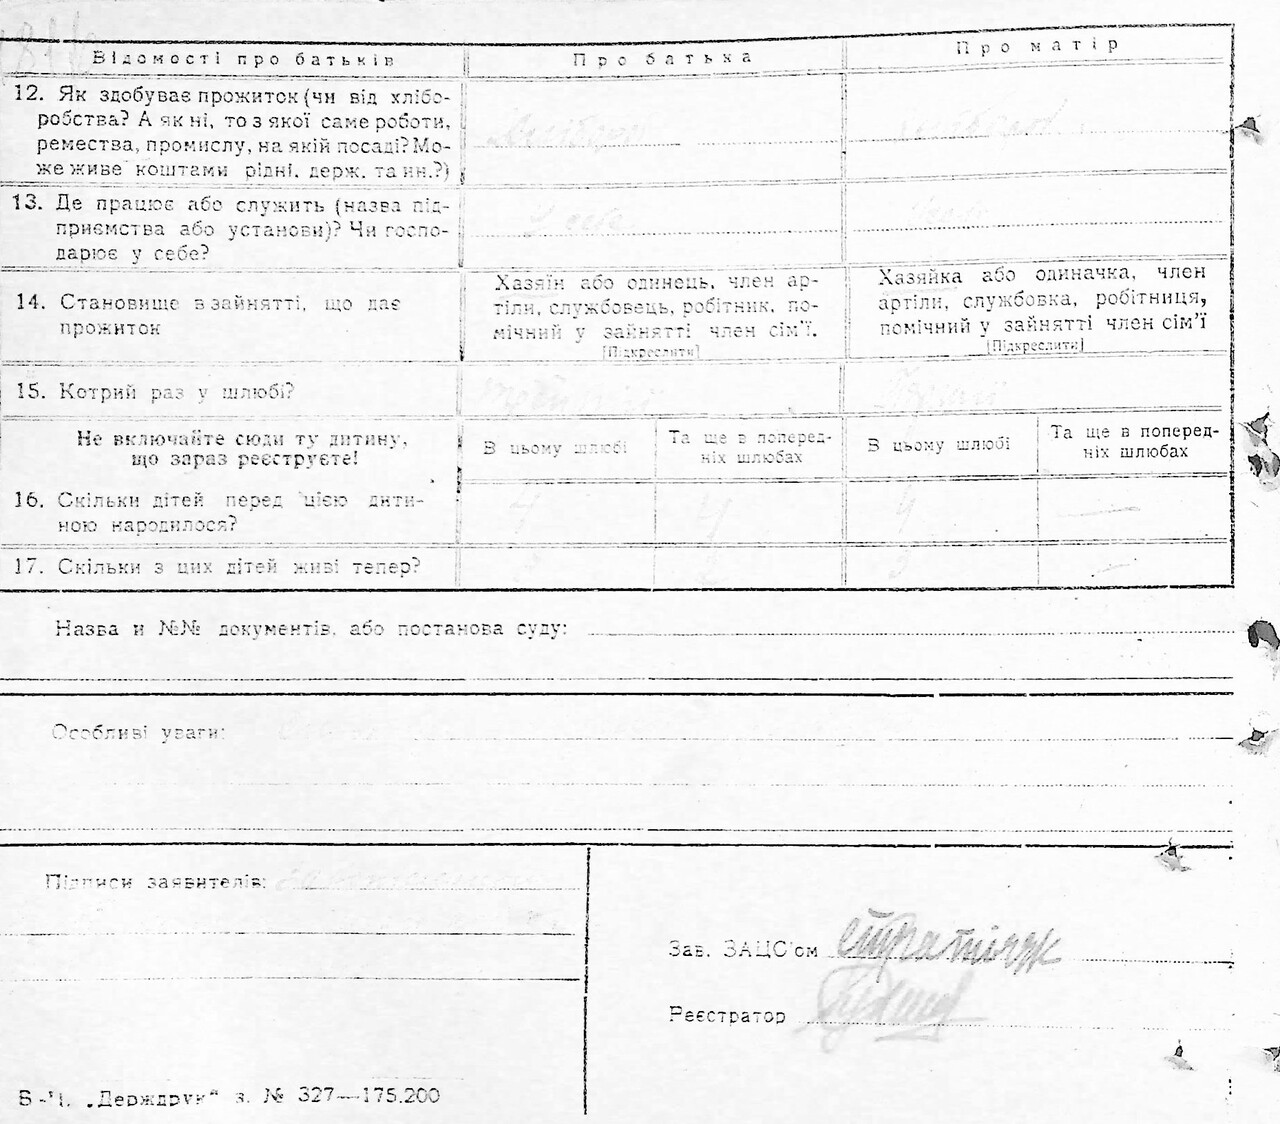 Відомості про батьків Про батька Про матір
12. Як здобуває прожиток (чи від хлібо-
робства? А як ні, то з якої саме роботи,
ремества, промислу, на якій посаді? Мо-
же живе коштами рідні, держ. та ин.?)
13. Де працює або служить (назва під-
приємства або установи)? Чи госпо-
дарює у себе?
14. Становище в зайнятті, що дає
прожиток
Хазяїн або одинець, член ар-
тіли, службовець, робітник, по-
мічний у зайнятті член сім'ї.
[Підкреслити]
Хазяйка або одиначка, член
артіли, службовка, робітниця,
помічний у зайнятті член сім'ї
[Підкреслити]
15. Котрий раз у шлюбі?
Не включайте сюди ту дитину,
що зараз реєструєте!
В цьому шлюбі
Та ще в поперед-
ніх шлюбах
В цьому шлюбі
Та ще в поперед-
ніх шлюбах
16. Скільки дітей перед цією дити-
ною народилося?
4 4 4 —
17. Скільки з цих дітей живі тепер?
Назва и №№ документів, або постанова суду:
Особливі уваги:
Підписи заявителів:
Зав. ЗАЦС'ом
Реєстратор
„Держдрук" з. № 327—175.200